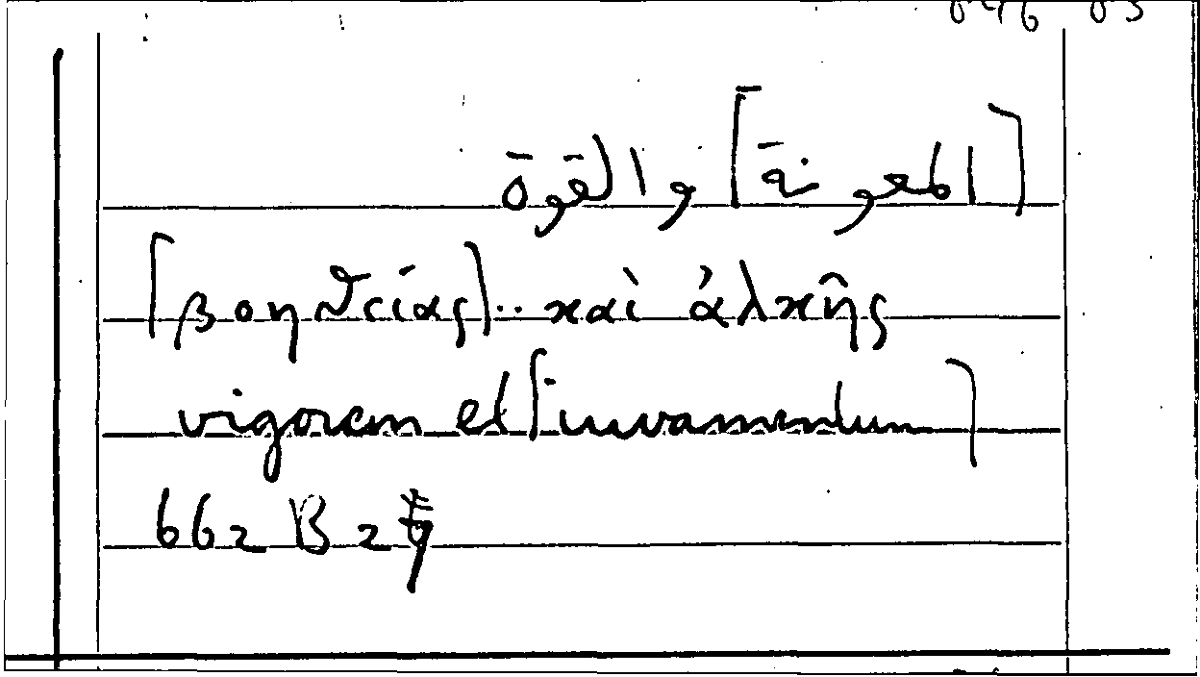 [المعونة] والقوة
[βοηθείας].. καὶ ἀλκῆς
vigorem et [iuvamentum]
662 B 29